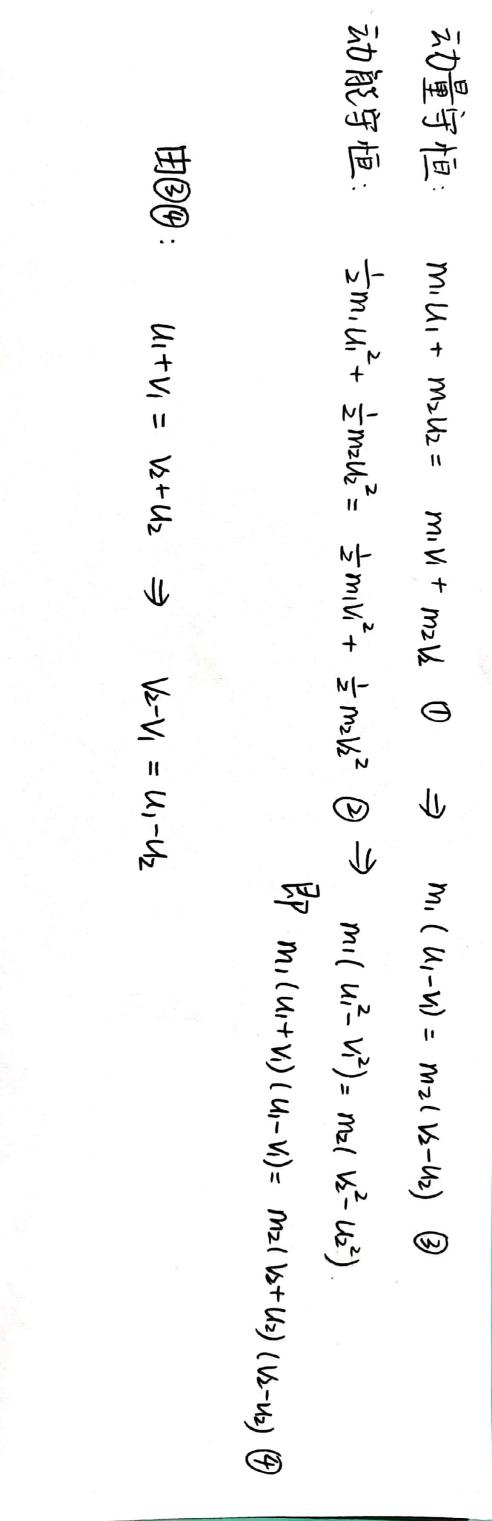 动量守恒: m₁u₁ + m₂u₂ = m₁v₁ + m₂v₂ ① ⇒ m₁(u₁-v₁) = m₂(v₂-u₂) ③
动能守恒: ½m₁u₁² + ½m₂u₂² = ½m₁v₁² + ½m₂v₂² ② ⇒ m₁(u₁²-v₁²) = m₂(v₂²-u₂²)
即 m₁(u₁+v₁)(u₁-v₁) = m₂(v₂+u₂)(v₂-u₂) ④
由③④: u₁+v₁ = v₂+u₂ ⇒ v₂-v₁ = u₁-u₂